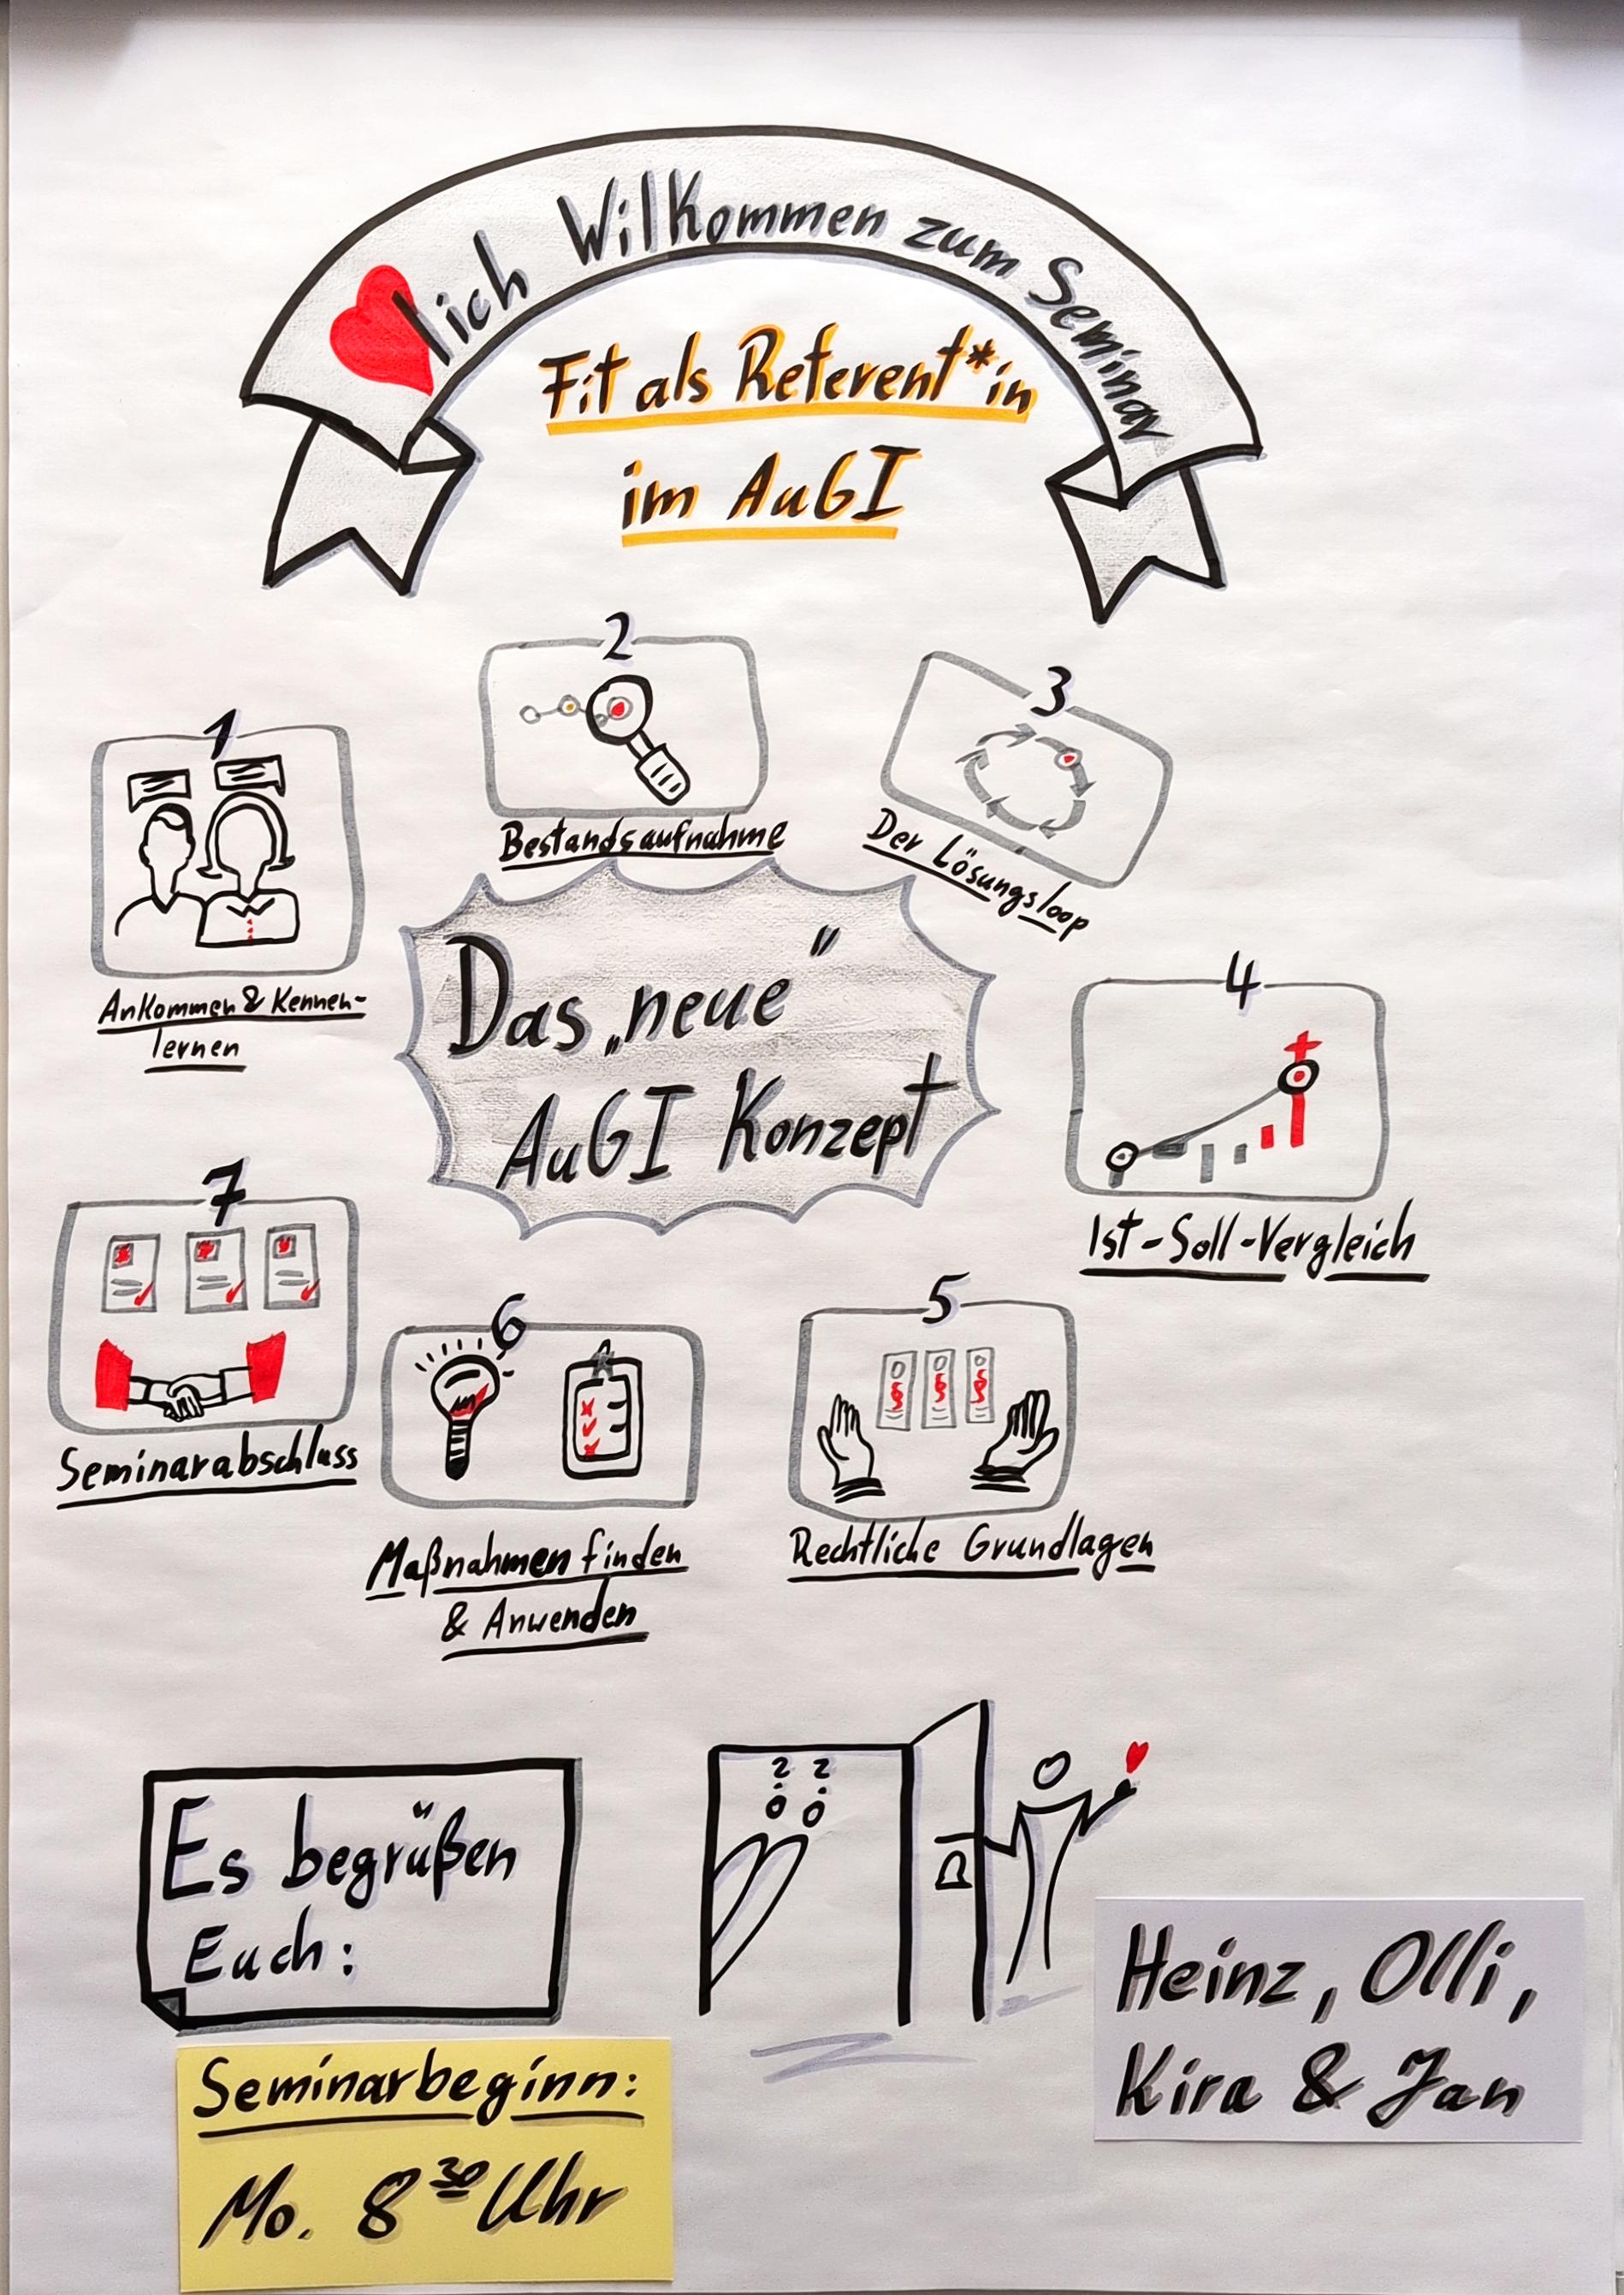 lich Wilkommen zum Seminar
Fit als Referent*in
im AuGI
1
Ankommen & Kennen-
lernen
2
Bestandsaufnahme
3
Der Lösungsloop
Das „neue"
AuGI Konzept
4
Ist-Soll-Vergleich
5
§ § §
Rechtliche Grundlagen
6
Maßnahmen finden
& Anwenden
7
Seminarabschluss
Es begrüßen
Euch:
? ?
Heinz, Olli,
Kira & Jan
Seminarbeginn:
Mo. 8³⁰ Uhr